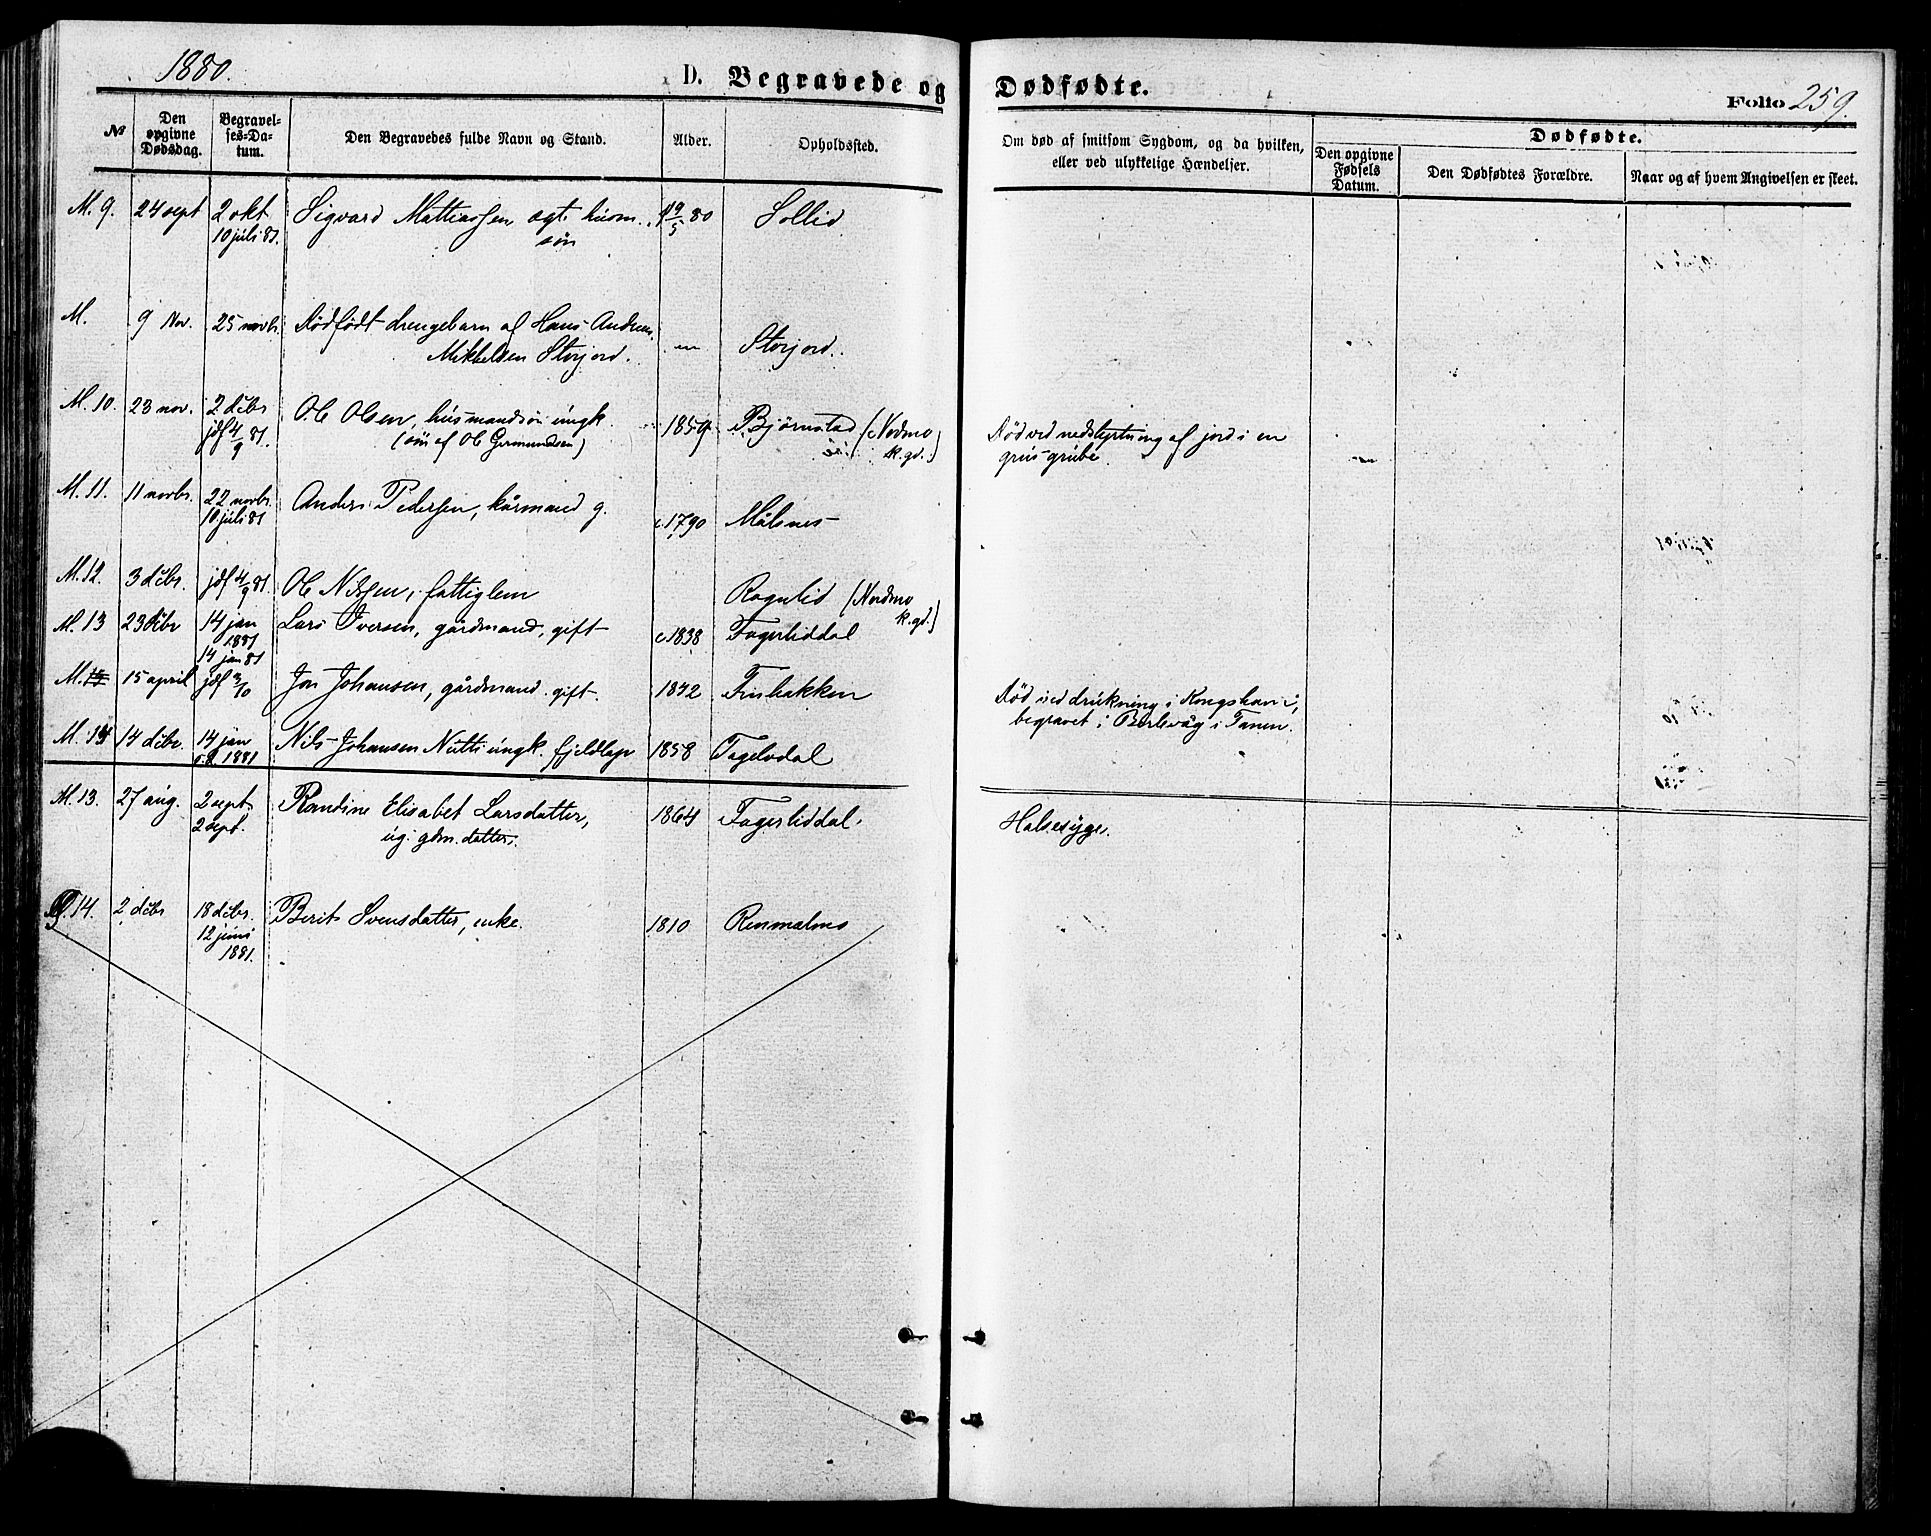 1880.
D. Begravede og Dødfødte.
Folio 259.
No
Den opgivne Dødsdag.
Begravelses-Datum.
Den Begravedes fulde Navn og Stand.
Alder.
Opholdssted.
Om død af smitsom Sygdom, og da hvilken, eller ved ulykkelige Hændelser.
Dødfødte.
Den opgivne Fødsels Datum.
Den Dødfødtes Forældre.
Naar og af hvem Angivelsen er skeet.
M. 9. 24 sept 2 okt Sigvard Mathiassen, ægt. husm. 19/5 80 Sollid.
10 juli 81. søn
M. 9 Nov. 25 novbr. Dødfødt drengebarn af Hans Andreas
Mikkelsen Storjord. — Storjord.
M. 10. 23 nov. 2 dcbr Ole Olsen, husmandsøn ungk. 1859 Bjørnstad (Nordmo k.gd.) Død ved nedstyrtning af jord i en
jdf 4/9 81. (søn af Ole Germundsen) grus-grube.
M. 11. 11 novbr. 22 novbr. Anders Pedersen, kårmand g. c. 1790 Målsnes
10 juli 81
M. 12. 3 dcbr. jdf 4/9 81. Ole Nilsen, fattiglem Rognlid (Nordmo k.gd.)
M. 13 23 dcbr 14 jan 1881 Lars Iversen, gårdmand, gift c. 1838 Fagerliddal
14 jan 81
M. 15 april jdf 3/10 Jon Johansen, gårdmand. gift. 1842 Finbakken Død ved drukning i Kongshavn,
begravet i Berlevåg i Tanen.
M. 14 14 dcbr. 14 jan Nils Johansen Nutti ungk. fjeldlap 1858 Tagelvdal
s.d. 1881
M. 13. 27 aug. 2 sept. Randine Elisabet Larsdatter, 1864 Fagerliddal. Halsesyge.
2 sept. ug. gdm. datter.
14. 2 dcbr 18 dcbr. Berit Svensdatter, enke. 1810 Renmalmo
12 juni
1881.